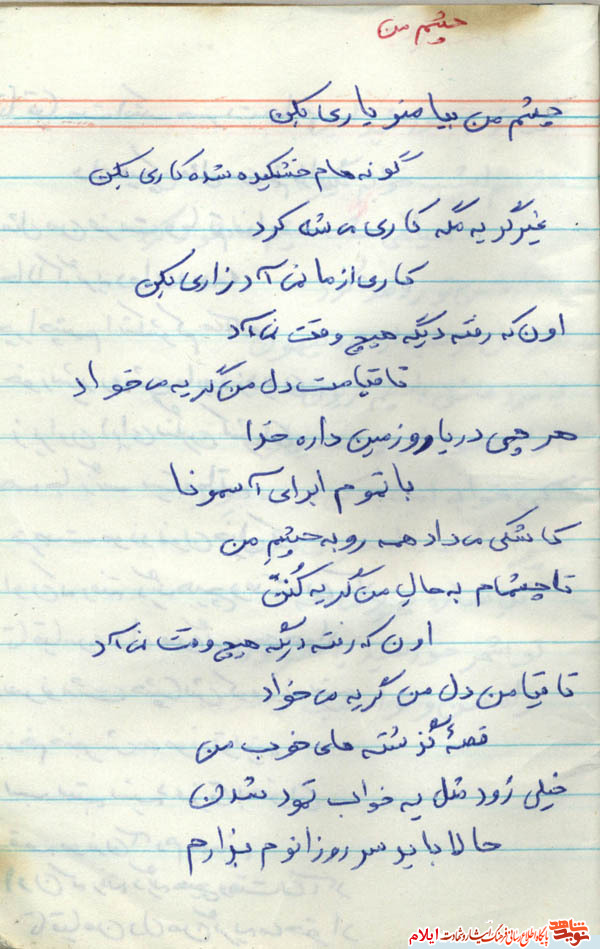 چشم من
چشم من بیا منو یاری بکن
گونه هام خشکیده شده کاری بکن
غیر گریه مگه کاری می شه کرد
کاری از ما نمی آد زاری بکن
اون که رفته دیگه هیچ وقت نمی آد
تا قیامت دل من گریه می خواد
هر چی دریا رو زمین داره خدا
با تموم ابرای آسمونا
کاشکی می داد همه رو به چشم من
تا چشمام به حال من گریه کنن
اون که رفته دیگه هیچ وقت نمی آد
تا قیامن دل من گریه می خواد
قصهٔ گذشته های خوب من
خیلی زود مثل یه خواب تموم شدن
حالا باید سر رو زانوم بذارم
نوید شاهد
پایگاه اطلاع رسانی فرهنگ ایثار و شهادت ایلام